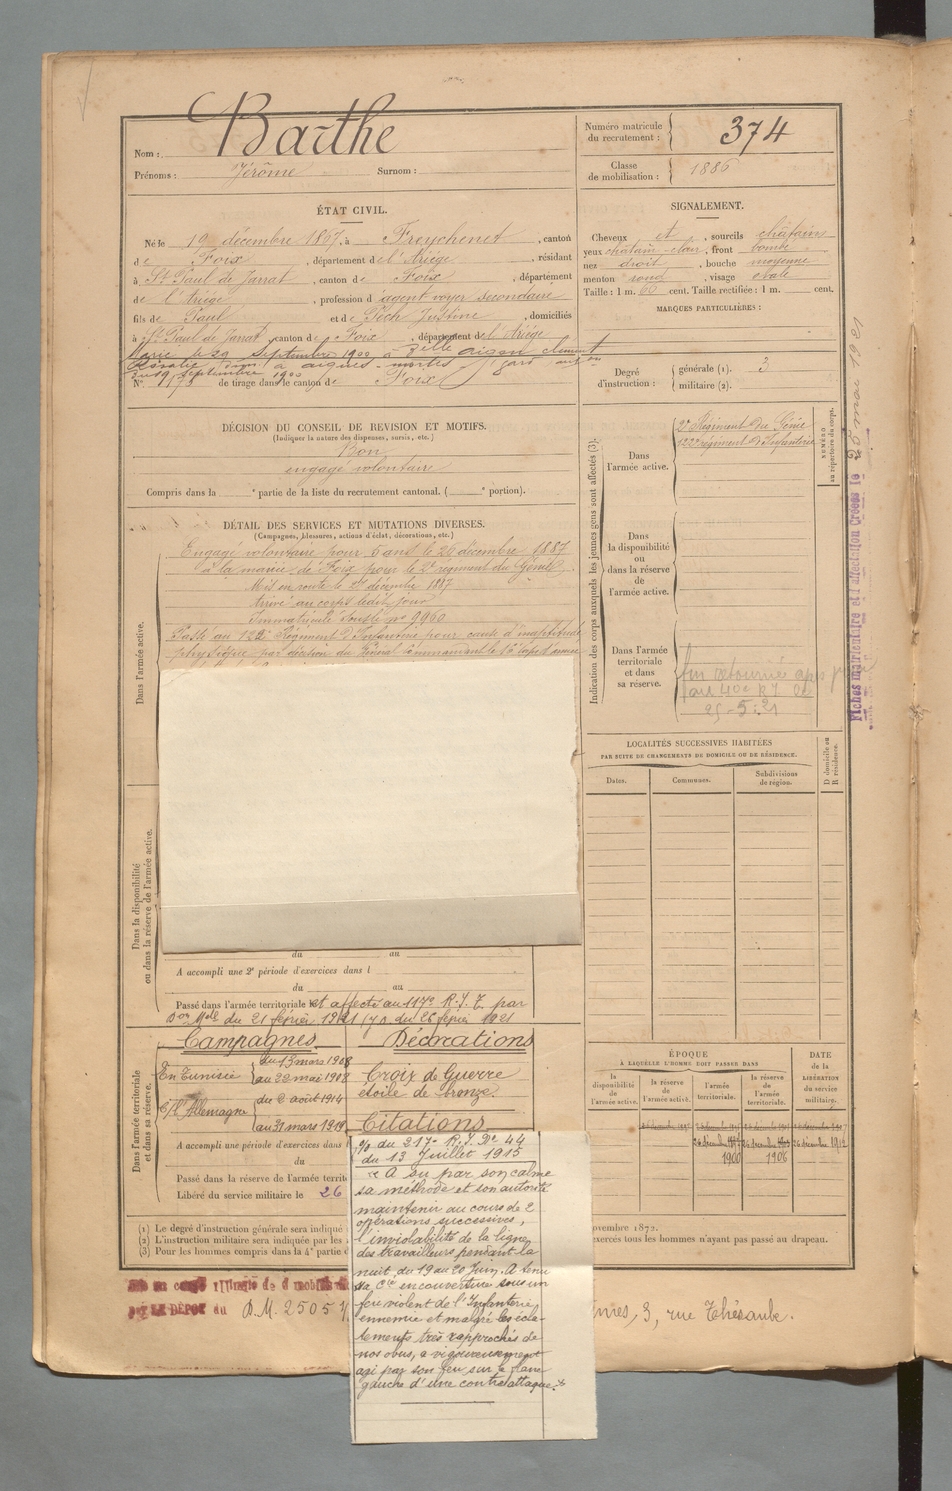 Nom : Barthe
Prénoms : Jérôme Surnom :
ÉTAT CIVIL.
Né le 19 décembre 1867, à Freychenet, canton
de Foix, département de l'Ariège, résidant
à St Paul de Jarrat, canton de Foix, département
de l'Ariège, profession d'agent voyer secondaire
fils de Paul et de Pech Justine, domiciliés
à St Paul de Jarrat, canton de Foix, département de l'Ariège
Marié le 29 septembre 1900 à
à aigues-mortes (gard)
du 19 septembre 1900
N° de tirage dans le canton de Foix
DÉCISION DU CONSEIL DE REVISION ET MOTIFS.
(Indiquer la nature des dispenses, sursis, etc.)
Bon
engagé volontaire
Compris dans la e partie de la liste du recrutement cantonal. ( e portion).
DÉTAIL DES SERVICES ET MUTATIONS DIVERSES.
(Campagnes, blessures, actions d'éclat, décorations, etc.)
Dans l'armée active.
Engagé volontaire pour 5 ans le 26 décembre 1887
à la mairie de Foix pour le 2e régiment du Génie.
Mis en route le décembre 1887
Arrivé au corps ledit jour
Immatriculé sous le n° 9960
Passé au 122e Régiment d'Infanterie pour cause d'inaptitude
physique par décision du Général Commandant le 16e corps d'armée
Dans la disponibilité
ou dans la réserve de l'armée active.
du au
A accompli une 2e période d'exercices dans l
du au
Passé dans l'armée territoriale et affecté au 117e R.I.T. par
Don Mlle du 21 février 1921
du 26 février 1921
Dans l'armée territoriale
et dans sa réserve.
Campagnes
En Tunisie
du 13 mars 1908
au 22 mai 1908
C/ l'Allemagne
du 2 août 1914
au 31 mars 1919
Décorations
Croix de Guerre
étoile de bronze.
Citations
A accompli une période d'exercices dans l
du
Passé dans la réserve de l'armée territ
Libéré du service militaire le 26
% du 217e R.I. No 44
du 13 Juillet 1915
« A su par son calme
sa méthode et son autorité
maintenir au cours de 2
opérations successives,
l'inviolabilité de la ligne
des travailleurs pendant la
nuit du 19 au 20 Juin. A tenu
sa Cie en couverture sous un
feu violent de l'Infanterie
ennemie et malgré les écla-
tements très rapprochés de
nos obus, a vigoureusement
agi par son feu sur le flanc
gauche d'une contre attaque. »
(1) Le degré d'instruction générale sera indiqué
(2) L'instruction militaire sera indiquée par les
(3) Pour les hommes compris dans la 4e partie d
ovembre 1872.
exercés tous les hommes n'ayant pas passé au drapeau.
LE DÉPOT du D.M. 2505
3, rue Thésaube.
Numéro matricule
du recrutement : 374
Classe
de mobilisation : 1886
SIGNALEMENT.
Cheveux et, sourcils châtain
yeux châtain clair, front bombé
nez droit, bouche moyenne
menton rond, visage ovale
Taille : 1 m. 60 cent. Taille rectifiée : 1 m. cent.
MARQUES PARTICULIÈRES :
Degré
d'instruction :
générale (1). 3
militaire (2).
Indication des corps auxquels les jeunes gens sont affectés (3).
Dans
l'armée active.
2e Régiment du Génie
122e régiment d'Infanterie
NUMÉRO
au répertoire du corps.
Dans
la disponibilité
ou
dans la réserve
de
l'armée active.
Dans l'armée
territoriale
et dans
sa réserve.
25-5-21
Fiches matriculaire et d'affectation Créées le 25 mai 1921
LOCALITÉS SUCCESSIVES HABITÉES
PAR SUITE DE CHANGEMENTS DE DOMICILE OU DE RÉSIDENCE.
Dates.
Communes.
Subdivisions
de région.
D domicile ou
R résidence.
ÉPOQUE
À LAQUELLE L'HOMME DOIT PASSER DANS
la
disponibilité
de
l'armée active.
la réserve
de
l'armée active.
l'armée
territoriale.
la réserve
de
l'armée
territoriale.
DATE
de la
LIBÉRATION
du service
militaire.
26 décembre 1912
1900 1906